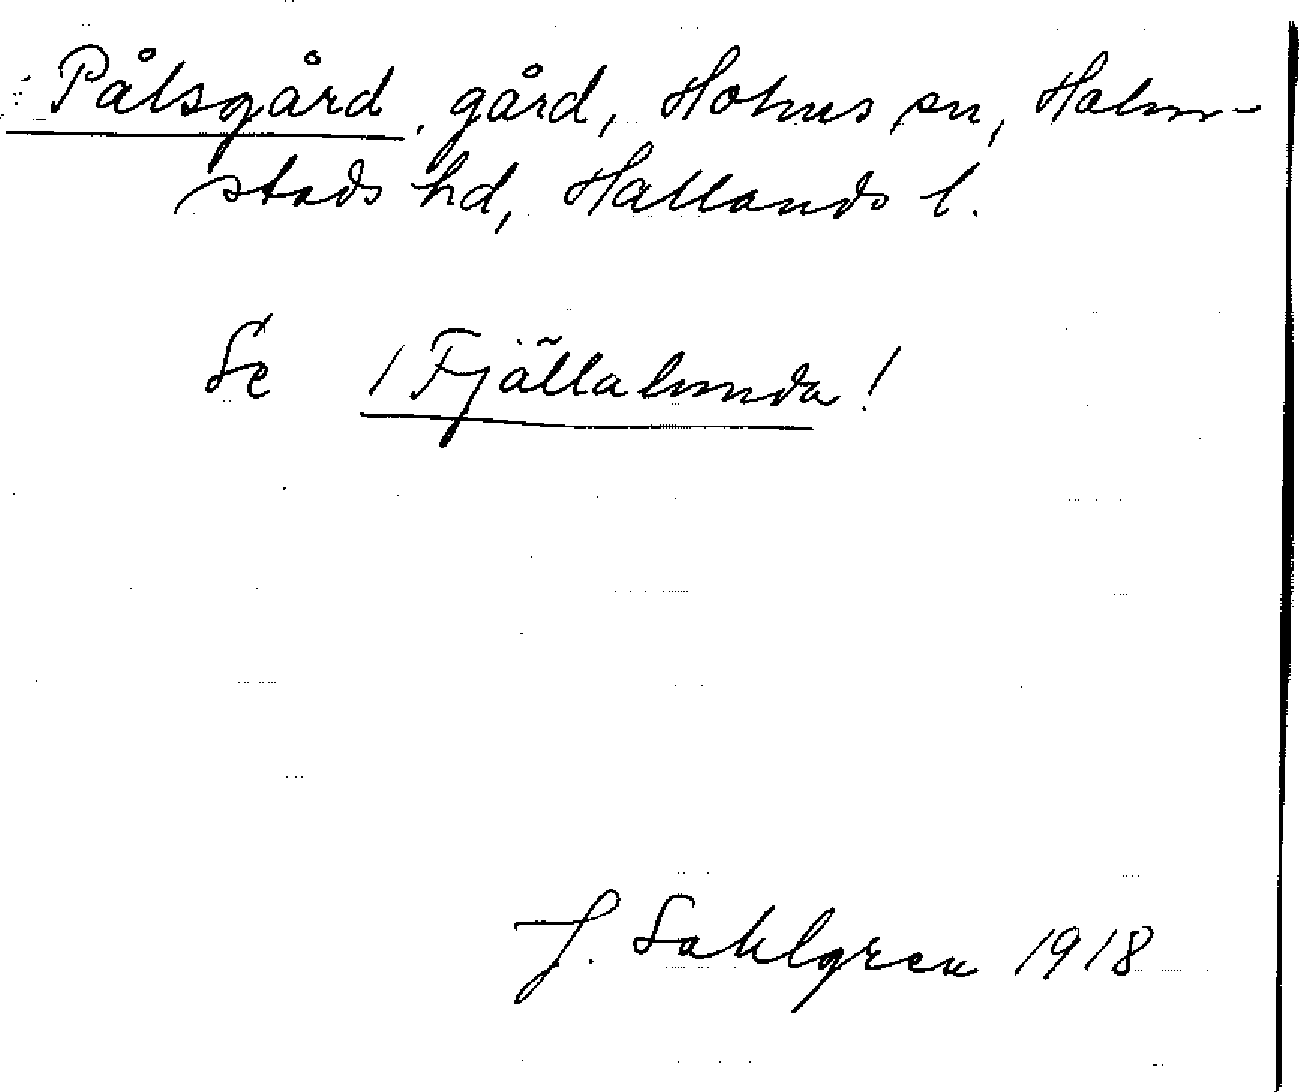 Pålsgård, gård, Holms sn, Halm-
stads hd, Hallands l.
Se /Fjällalunda!
J. Sahlgren 1918